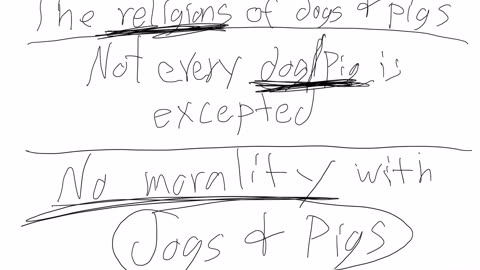 The religions of dogs & pigs
Not every dog/Pig is
excepted
No morality with
Dogs & Pigs